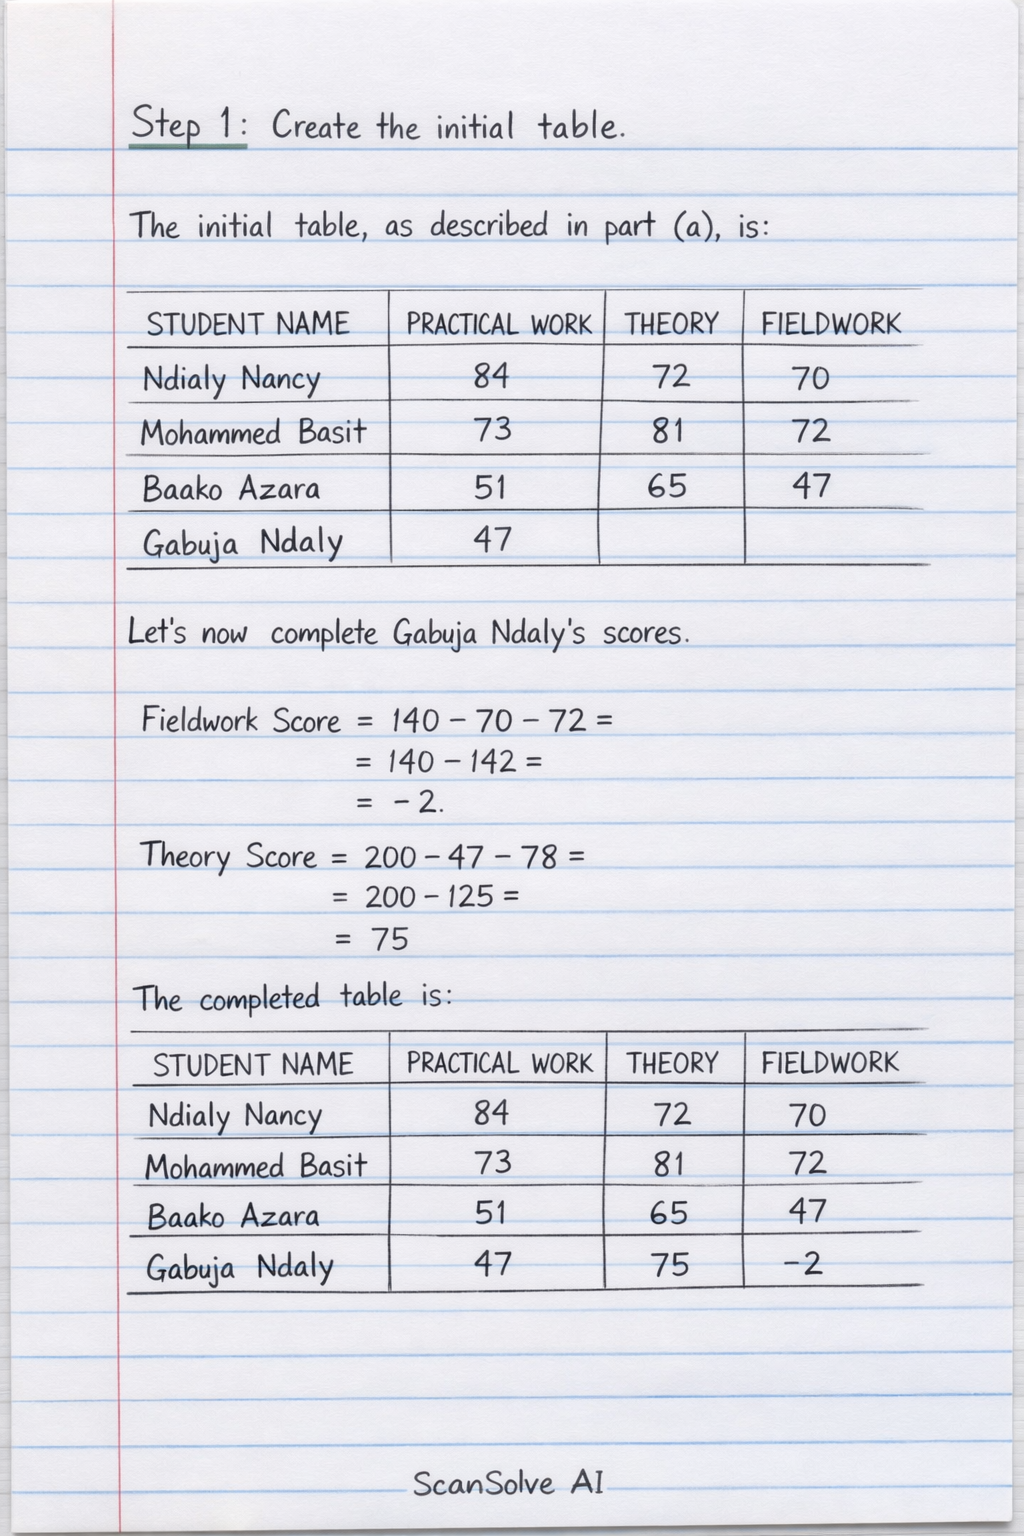 Step 1: Create the initial table.
The initial table, as described in part (a), is:
STUDENT NAME PRACTICAL WORK THEORY FIELDWORK
Ndialy Nancy 84 72 70
Mohammed Basit 73 81 72
Baako Azara 51 65 47
Gabuja Ndaly 47
Let's now complete Gabuja Ndaly's scores.
Fieldwork Score = 140 - 70 - 72 =
= 140 - 142 =
= -2.
Theory Score = 200 - 47 - 78 =
= 200 - 125 =
= 75
The completed table is:
STUDENT NAME PRACTICAL WORK THEORY FIELDWORK
Ndialy Nancy 84 72 70
Mohammed Basit 73 81 72
Baako Azara 51 65 47
Gabuja Ndaly 47 75 -2
ScanSolve AI